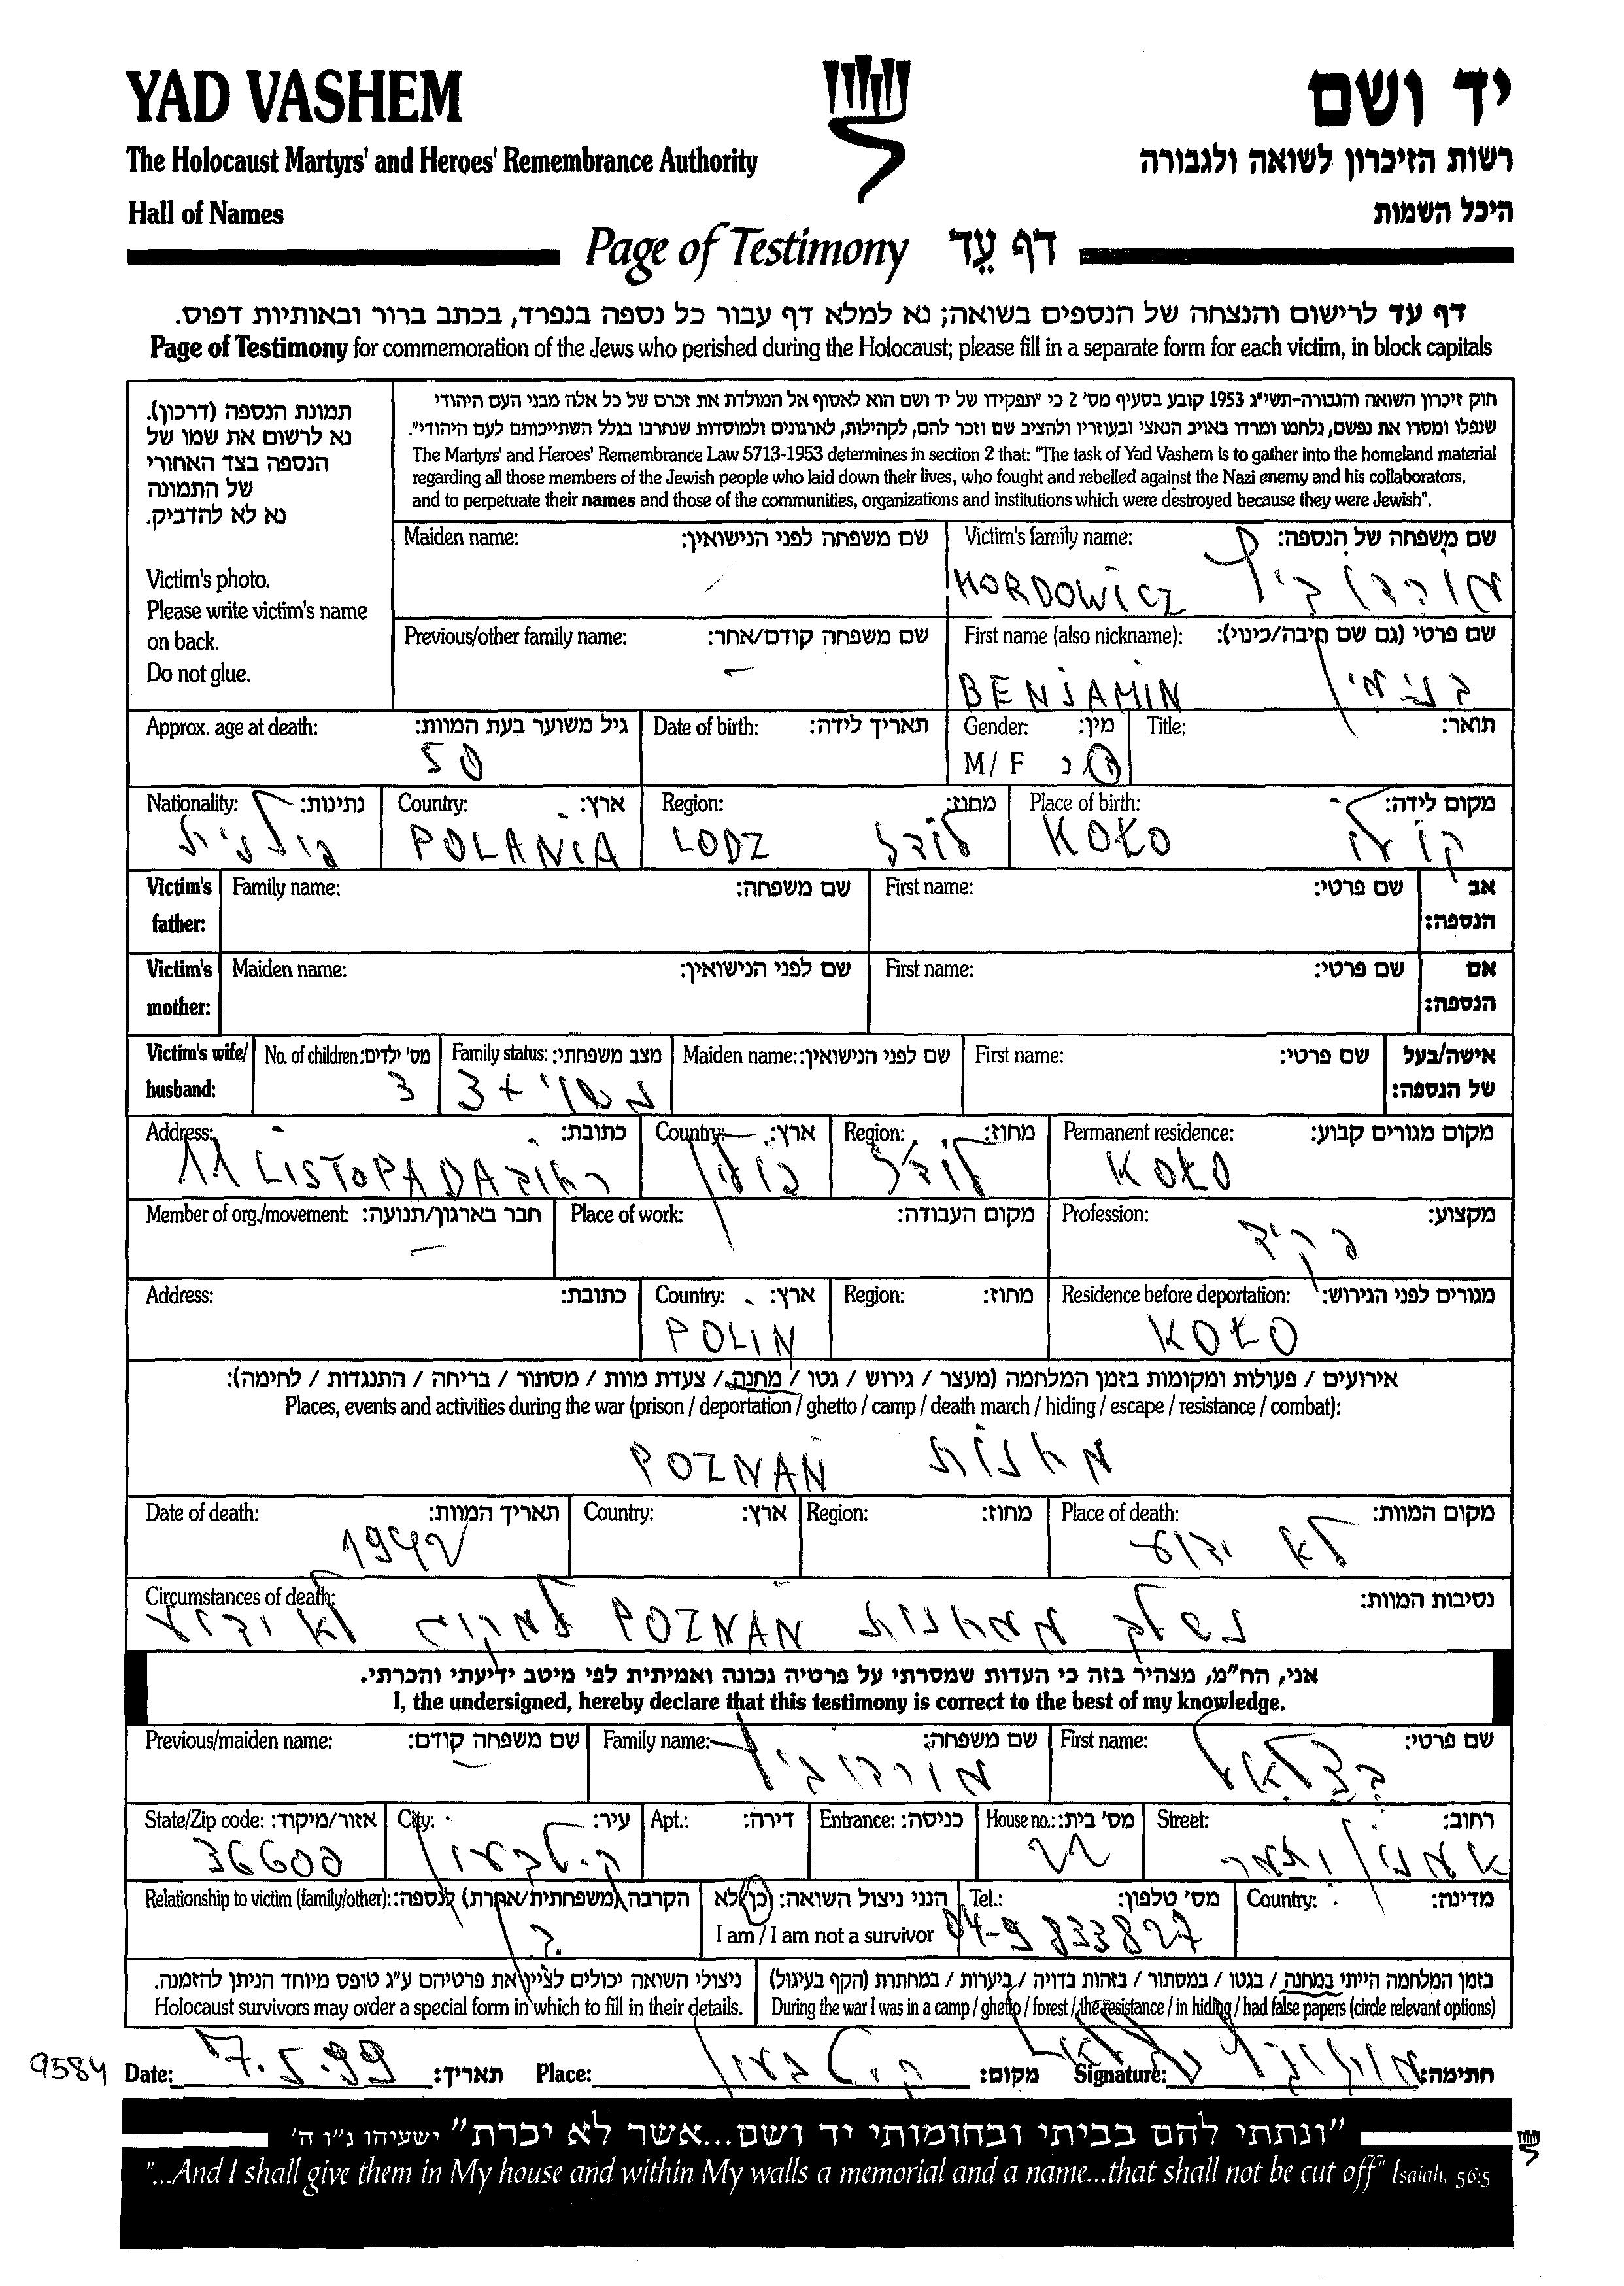 YAD VASHEM
יד ושם
The Holocaust Martyrs' and Heroes' Remembrance Authority
רשות הזיכרון לשואה ולגבורה
Hall of Names
היכל השמות
Page of Testimony דף עֵד
דף עד לרישום והנצחה של הנספים בשואה; נא למלא דף עבור כל נספה בנפרד, בכתב ברור ובאותיות דפוס.
Page of Testimony for commemoration of the Jews who perished during the Holocaust; please fill in a separate form for each victim, in block capitals
תמונת הנספה (דרכון).
נא לרשום את שמו של
הנספה בצד האחורי
של התמונה
נא לא להדביק.
Victim's photo.
Please write victim's name
on back.
Do not glue.
חוק זיכרון השואה והגבורה-תשי״ג 1953 קובע בסעיף מס׳ 2 כי ״תפקידו של יד ושם הוא לאסוף אל המולדת את זכרם של כל אלה מבני העם היהודי
שנפלו ומסרו את נפשם, נלחמו ומרדו באויב הנאצי ובעוזריו ולהציב שם וזכר להם, לקהילות, לארגונים ולמוסדות שנחרבו בגלל השתייכותם לעם היהודי״.
The Martyrs' and Heroes' Remembrance Law 5713-1953 determines in section 2 that: "The task of Yad Vashem is to gather into the homeland material
regarding all those members of the Jewish people who laid down their lives, who fought and rebelled against the Nazi enemy and his collaborators,
and to perpetuate their names and those of the communities, organizations and institutions which were destroyed because they were Jewish".
Maiden name: שם משפחה לפני הנישואין: Victim's family name: שם משפחה של הנספה:
MORDOWICZ מורדוביץ
Previous/other family name: שם משפחה קודם/אחר: First name (also nickname): שם פרטי (גם שם חיבה/כינוי):
BENJAMIN בנימין
Approx. age at death: גיל משוער בעת המוות: Date of birth: תאריך לידה: Gender: מין: Title: תואר:
50 M / F ז נ
Nationality: נתינות: Country: ארץ: Region: מחוז: Place of birth: מקום לידה:
פולנית POLANIA LODZ לודז KOŁO קולו
Victim's father: Family name: שם משפחה: First name: שם פרטי: אב הנספה:
Victim's mother: Maiden name: שם לפני הנישואין: First name: שם פרטי: אם הנספה:
Victim's wife/ husband: No. of children: מס׳ ילדים: Family status: מצב משפחתי: Maiden name: שם לפני הנישואין: First name: שם פרטי: אישה/בעל של הנספה:
3 נשוי + 3
Address: כתובת: Country: ארץ: Region: מחוז: Permanent residence: מקום מגורים קבוע:
11 LISTOPADA רחוב פולין לודז KOŁO
Member of org./movement: חבר בארגון/תנועה: Place of work: מקום העבודה: Profession: מקצוע:
פקיד
Address: כתובת: Country: ארץ: Region: מחוז: Residence before deportation: מגורים לפני הגירוש:
POLIN KOŁO
אירועים / פעולות ומקומות בזמן המלחמה (מעצר / גירוש / גטו / מחנה / צעדת מוות / מסתור / בריחה / התנגדות / לחימה):
Places, events and activities during the war (prison / deportation / ghetto / camp / death march / hiding / escape / resistance / combat):
מחנות POZNAŃ
Date of death: תאריך המוות: Country: ארץ: Region: מחוז: Place of death: מקום המוות:
1942 לא ידוע
Circumstances of death: נסיבות המוות:
נשלח ממחנות POZNAŃ למקום לא ידוע
אני, הח״מ, מצהיר בזה כי העדות שמסרתי על פרטיה נכונה ואמיתית לפי מיטב ידיעתי והכרתי.
I, the undersigned, hereby declare that this testimony is correct to the best of my knowledge.
Previous/maiden name: שם משפחה קודם: Family name: שם משפחה: First name: שם פרטי:
מורדוביץ בצלאל
State/Zip code: אזור/מיקוד: City: עיר: Apt.: דירה: Entrance: כניסה: House no.: מס׳ בית: Street: רחוב:
36600 ק. טבעון 22 אמנון ותמר
Relationship to victim (family/other): הקרבה (משפחתית/אחרת) לנספה: הנני ניצול השואה: כן/לא Tel.: מס׳ טלפון: Country: מדינה:
I am / I am not a survivor 04-9833827
ניצולי השואה יכולים לציין את פרטיהם ע״ג טופס מיוחד הניתן להזמנה.
Holocaust survivors may order a special form in which to fill in their details.
בזמן המלחמה הייתי במחנה / בגטו / במסתור / בזהות בדויה / ביערות / במחתרת (הקף בעיגול)
During the war I was in a camp / ghetto / forest / the resistance / in hiding / had false papers (circle relevant options)
9584 Date: 7.5.99 תאריך: Place: ק. טבעון מקום: Signature: מורדוביץ בצלאל חתימה:
״ונתתי להם בביתי ובחומותי יד ושם...אשר לא יכרת״ ישעיהו נ״ו ה׳
"...And I shall give them in My house and within My walls a memorial and a name...that shall not be cut off" Isaiah, 56:5